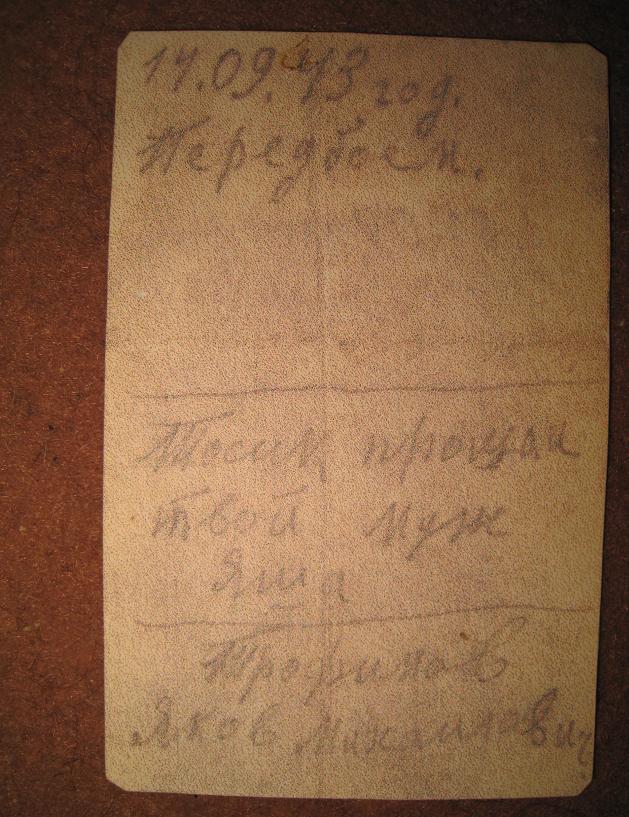 14.09.43 год.
Перед боем.
Тосик прощай
твой муж
Яша
Трофимов
Яков Михайлович